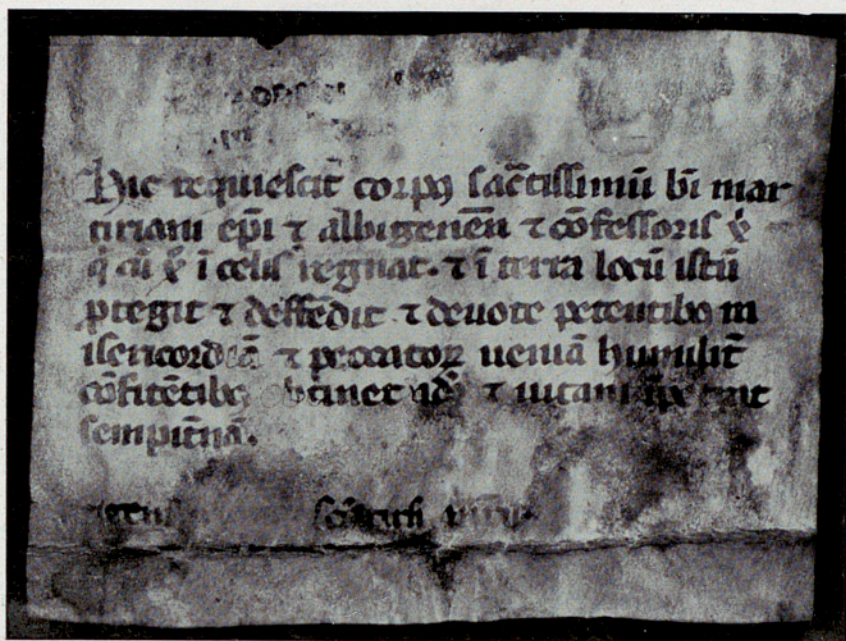 Hic requiescit̄ corpꝰ sāctissimū bi̅ mar
ciriani ep̄i ⁊ albigenen̄ ⁊ cōfessoris x̄
q̇ cū x̄ ī celis regnat. ⁊ ī terra locū istū
ꝓtegit ⁊ deffēdit ⁊ deuote petentibꝰ m
isericordiā ⁊ peccatoꝝ ueniā humilit̄
cōfitētibꝰ ⁊ uitam
sempit̄nā.